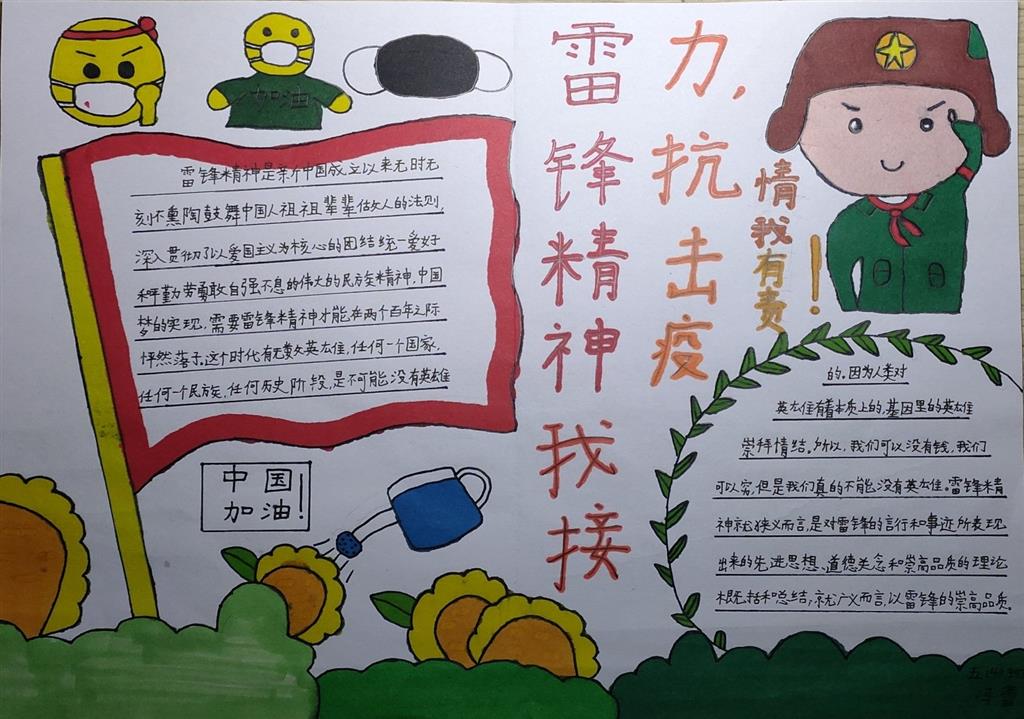 加油
雷锋精神我接
力,抗击疫
情我有责!
雷锋精神是新中国成立以来无时无
刻不熏陶鼓舞中国人祖祖辈辈做人的法则,
深入贯彻了以爱国主义为核心的团结统一爱好
和平勤劳勇敢自强不息的伟大的民族精神,中国
梦的实现,需要雷锋精神才能在两个百年之际
怦然落子,这个时代有无数英雄,任何一个国家,
任何一个民族,任何历史阶段,是不可能没有英雄
的。因为人类对
英雄有着本质上的,基因里的英雄
崇拜情结。所以,我们可以没有钱,我们
可以穷,但是我们真的不能没有英雄。雷锋精
神就狭义而言,是对雷锋的言行和事迹所表现
出来的先进思想、道德关念和崇高品质的理论
概括和总结,就广义而言,以雷锋的崇高品质。
中国
加油!